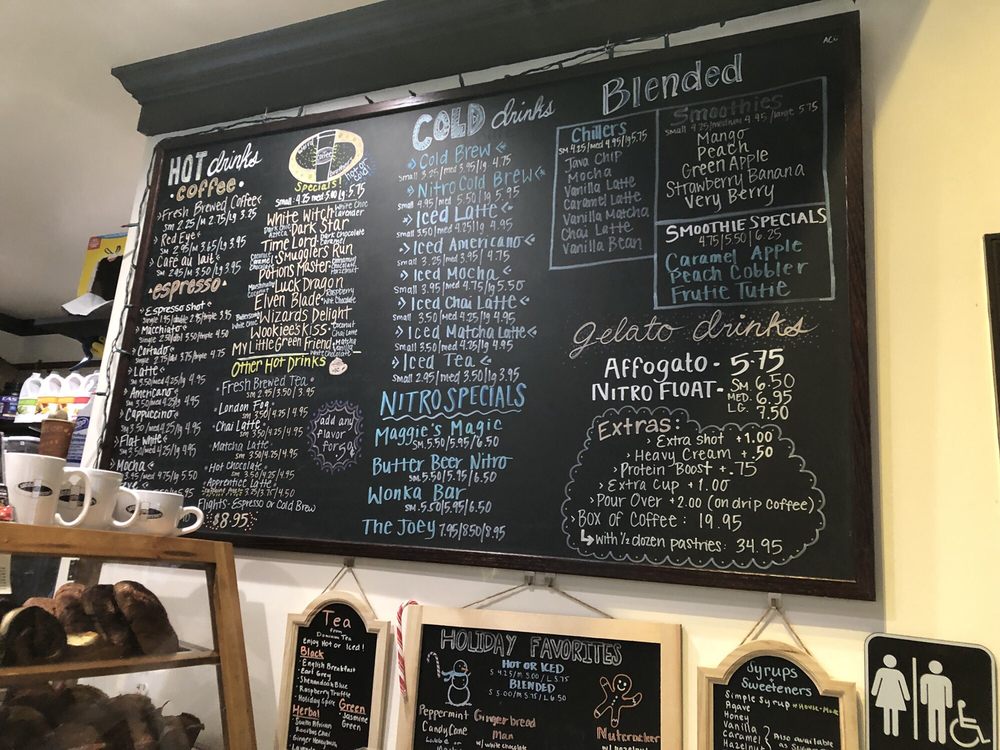 HOT drinks
• coffee •
> Fresh Brewed Coffee <
sm 2.25/m 2.75/lg 3.25
> Red Eye <
sm 2.95/m 3.65/lg 3.95
> Café au lait <
sm 2.95/m 3.50/lg 3.95
• espresso •
> Espresso shot <
> Macchiato <
> Cortado <
> Latte <
sm 3.50/med 4.25/lg 4.95
> Americano <
> Cappuccino <
> Flat White <
> Mocha <
Specials!
hot or cold!
small 4.25 med 5.00 lg 5.75
White Witch White Choc Lavender
Dark Star
Time Lord
Smugglers Run
Potions Master
Luck Dragon
Elven Blade Raspberry White Chocolate
Wizards Delight
Wookiees Kiss Coconut Chai Latte
My Little Green Friend
Other Hot Drinks
• Fresh Brewed Tea •
sm 2.95/3.50/3.95
• London Fog •
sm 3.50/4.25/4.95
• Chai Latte •
sm 3.50/4.25/4.95
• Matcha Latte •
sm 3.50/4.25/4.95
• Hot Chocolate •
sm 3.50/4.25/4.95
• Apprentice Latte •
Flights - Espresso or Cold Brew
$8.95
add any flavor for .50
COLD drinks
> Cold Brew <
small 3.25/med 3.95/lg 4.75
> Nitro Cold Brew <
small 4.95/med 5.50/lg 5.95
> Iced Latte <
small 3.50/med 4.25/lg 4.95
> Iced Americano <
small 3.25/med 3.95/4.75
> Iced Mocha <
small 3.95/med 4.75/lg 5.50
> Iced Chai Latte <
small 3.50/med 4.25/lg 4.95
> Iced Matcha Latte <
small 3.50/med 4.25/lg 4.95
> Iced Tea <
small 2.95/med 3.50/lg 3.95
NITRO SPECIALS
Maggie's Magic
sm 5.50/5.95/6.50
Butter Beer Nitro
sm 5.50/5.95/6.50
Wonka Bar
sm 5.50/5.95/6.50
The Joey 7.95/8.50/8.95
Blended
Chillers
sm 4.25/med 4.95/lg 5.75
Java Chip
Mocha
Vanilla Latte
Caramel Latte
Vanilla Matcha
Chai Latte
Vanilla Bean
Smoothies
small 4.25/medium 4.95/large 5.75
Mango
Peach
Green Apple
Strawberry Banana
Very Berry
SMOOTHIE SPECIALS
4.75/5.50/6.25
Caramel Apple
Peach Cobbler
Frutie Tutie
gelato drinks
Affogato - 5.75
Nitro Float - SM. 6.50
MED. 6.95
LG. 7.50
Extras:
> Extra Shot +1.00
> Heavy Cream +.50
> Protein Boost +.75
> Extra Cup +1.00
> Pour Over +2.00 (on drip coffee)
> Box of Coffee: 19.95
↳ with ½ dozen pastries: 34.95
Tea
from
Dominion Tea
enjoy Hot or Iced!
Black
• English Breakfast
• Earl Grey
• Shenandoah Blue
• Raspberry Truffle
• Holiday Spice
Green
• Jasmine
Green
Herbal
• South African
Rooibos Chai
HOLIDAY FAVORITES
HOT OR ICED
S 4.25/M 5.00/L 5.75
BLENDED
S 5.00/M 5.75/L 6.50
Peppermint
Candy Cane
Gingerbread
Man
w/ white chocolate
Nutcracker
Syrups &
Sweeteners
Simple Syrup *House-Made
Agave
Honey
Vanilla
Caramel
Hazelnut
Also available